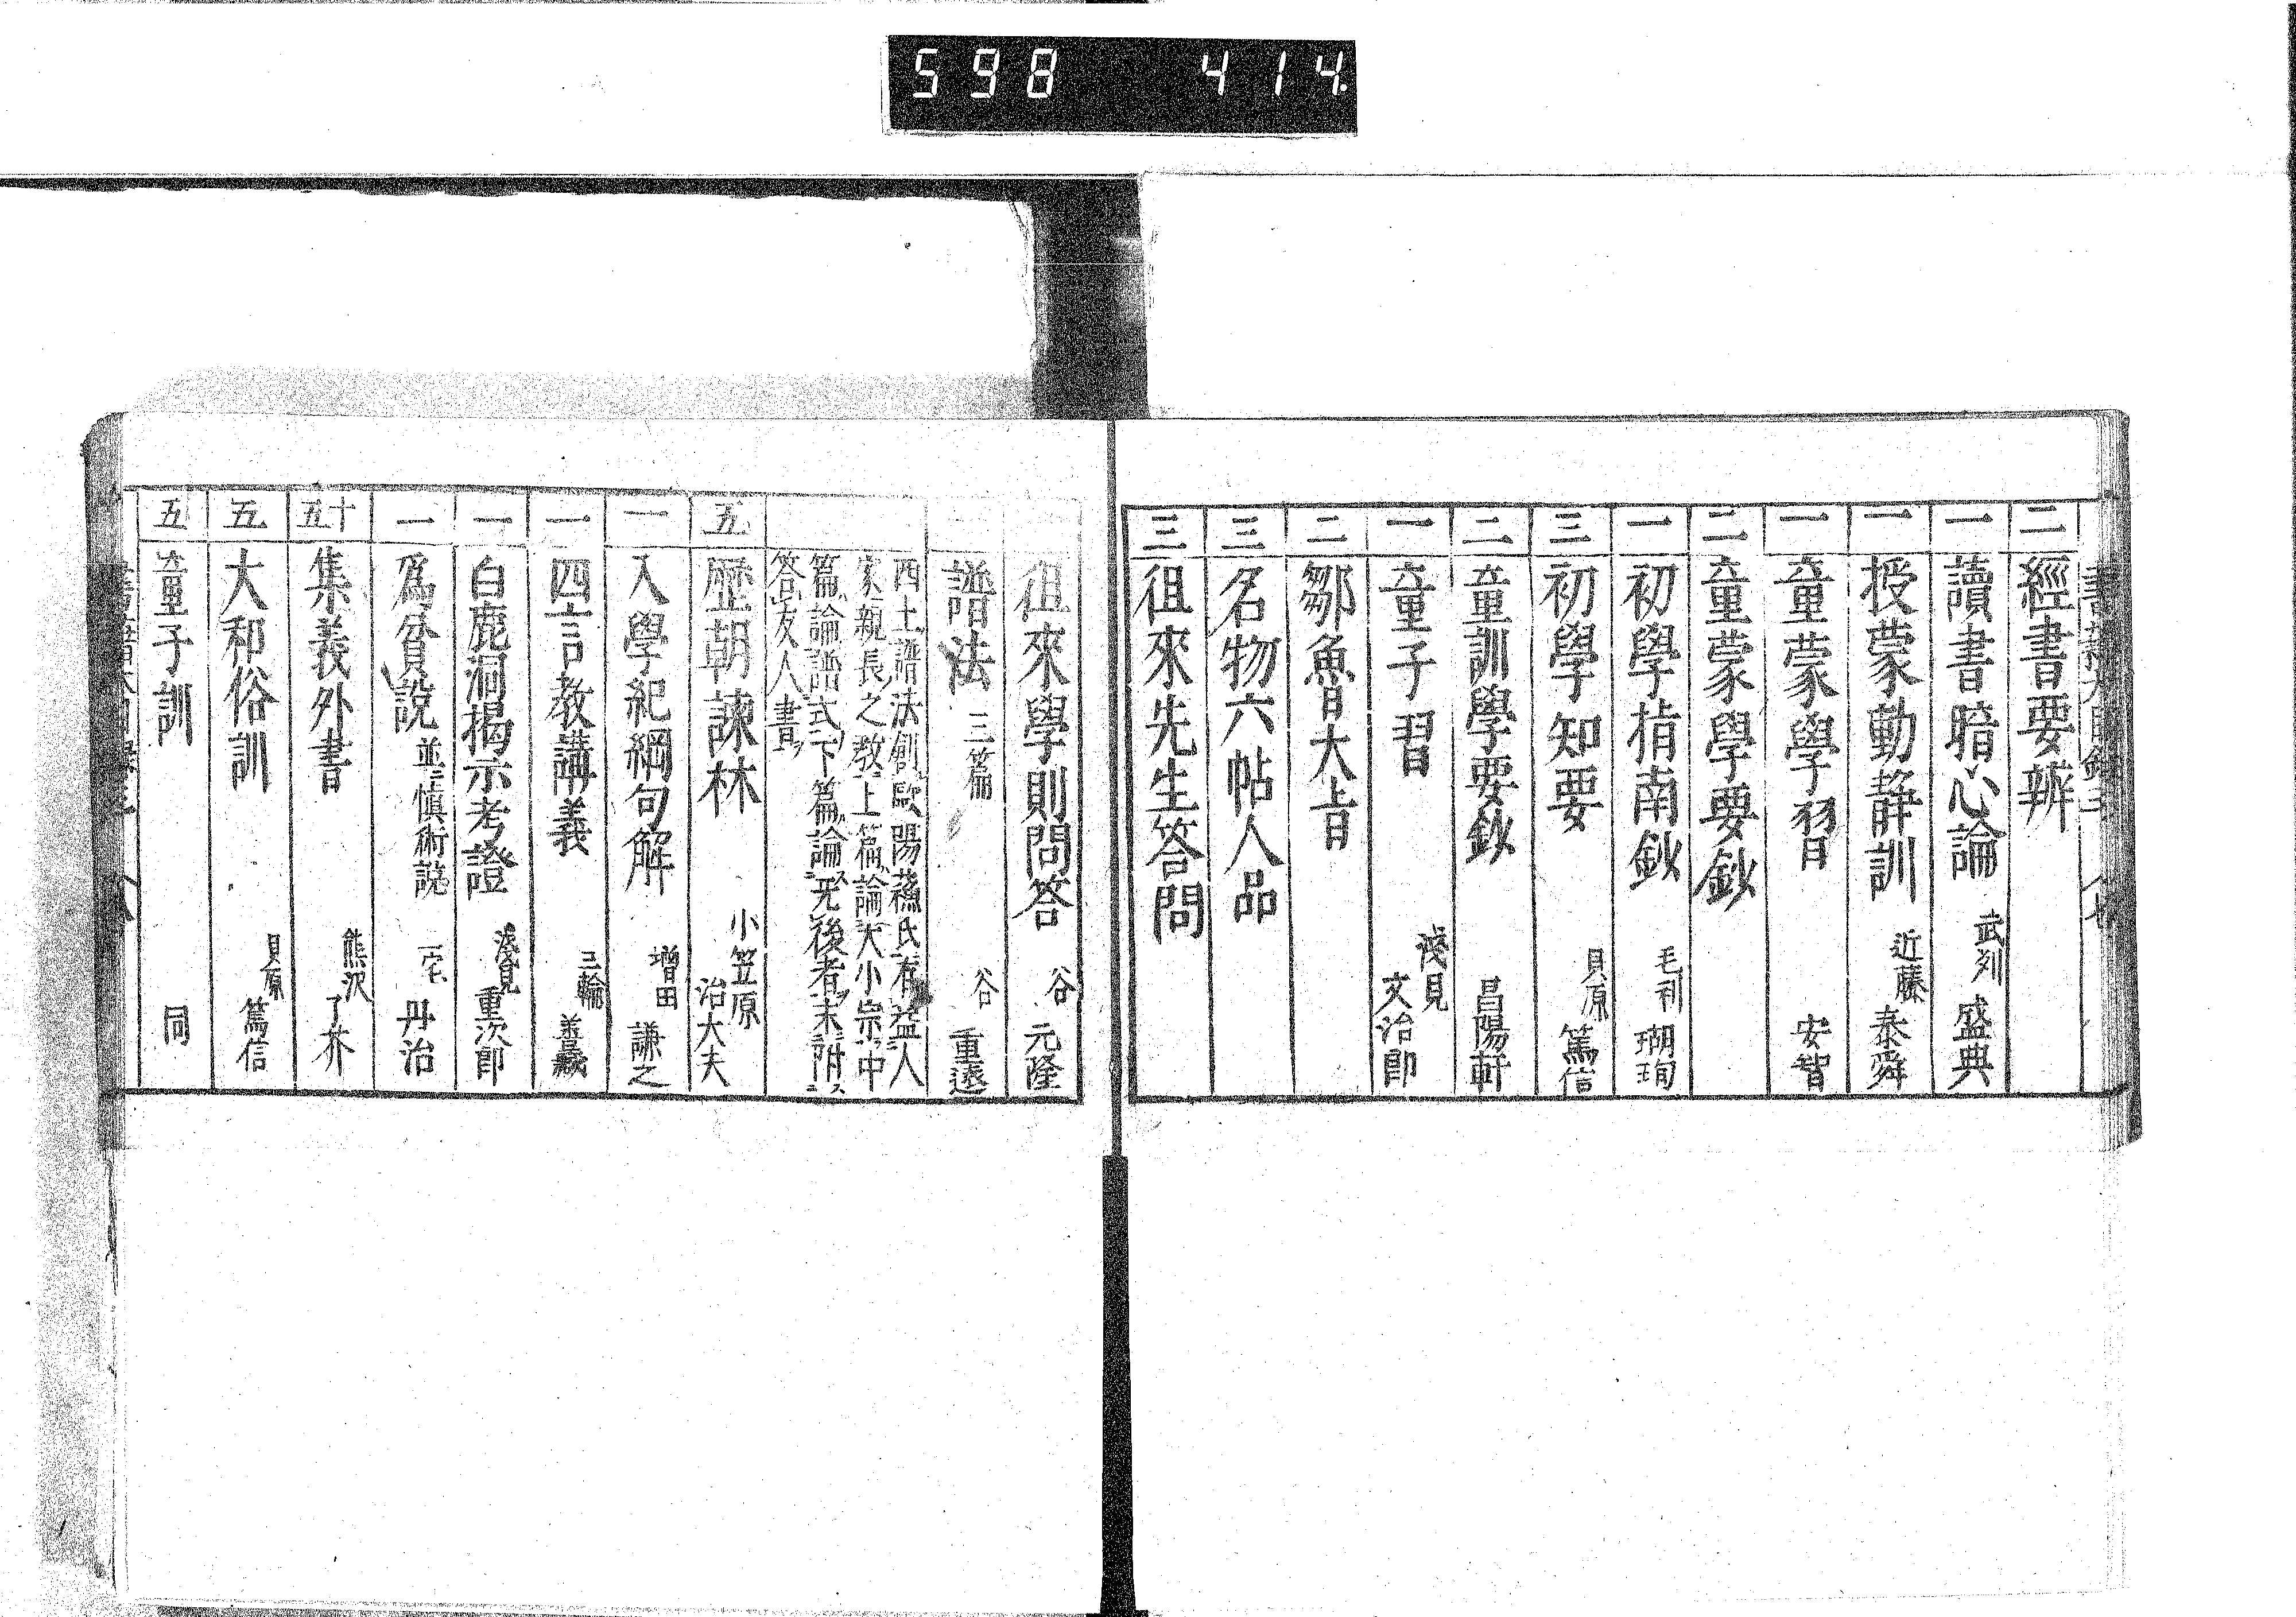 598 414
二 經書要辨
一 讀書暗心論 武列 盛典
一 授蒙動静訓 近藤 泰舜
一 童蒙學習 安智
二 童蒙學要鈔
一 初學指南鈔 毛利 瑚珣
三 初學知要 貝原 篤信
二 童訓學要鈔 昌陽軒
一 童子習 淺見 文治郎
二 鄒魯大旨
三 名物六帖人品
三 徂來先生答問
徂來學則問答 谷 元隆
譜法 三篇 谷 重遠
西土譜法創歐陽蘓氏有益人
家親長之教上篇論大小宗中
篇論譜式下篇論无後者末附
答友人書
五 歷朝諫林 小笠原 治大夫
一 入學紀綱句解 増田 謙之
一 四言教講義 三輪 善藏
一 白鹿洞揭示考證 淺見 重次郎
一 爲貧說 並愼術説 三宅 丹治
十五 集義外書 熊沢 了芥
五 大和俗訓 貝原 篤信
五 童子訓 同